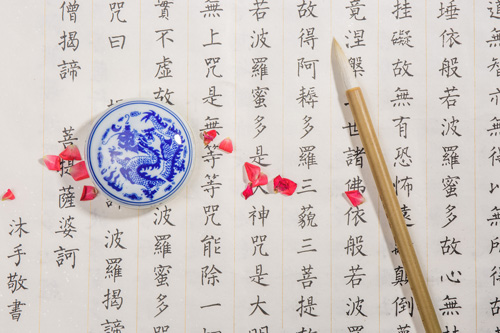 道無智亦無得以無所得
埵依般若波羅蜜多故心無
挂礙故無有恐怖遠顛倒
竟涅槃世諸佛依般若
故得阿耨多羅三藐三菩提
若波羅蜜多是大神咒是大
無上咒是無等等咒能除一
實不虛故波羅蜜多
咒曰波羅揭諦
僧揭諦菩提薩婆訶
沐手敬書